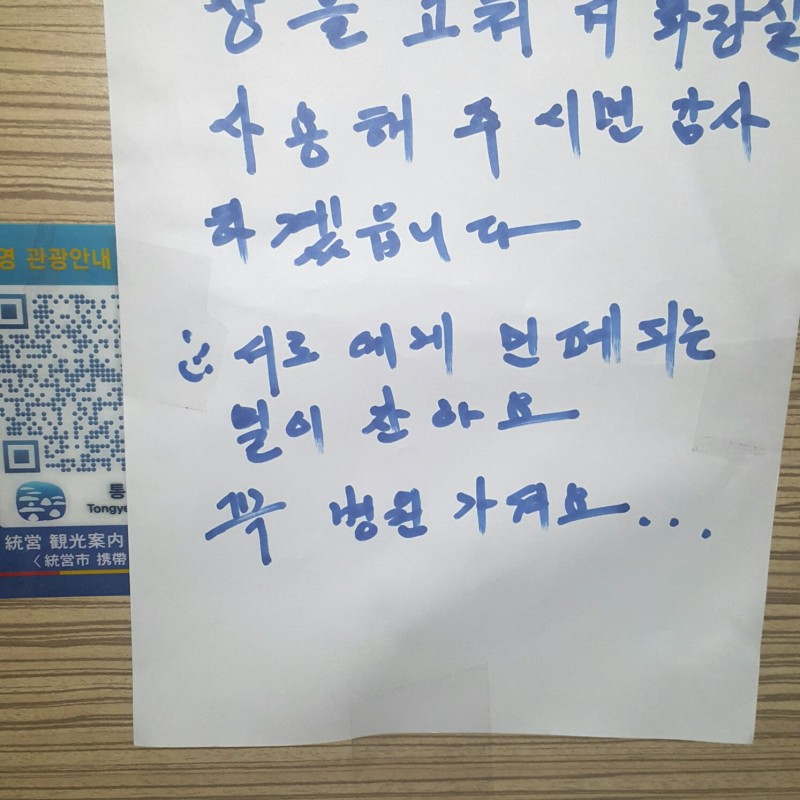 장을 고쳐 서 화장실
사용해 주시면 감사
하겠읍니다
서로에게 민페되는
일이 잔아요
꼭 병원 가셔요...
영 관광안내
통
Tongye
統営 観光案内
〈統営市 携帯